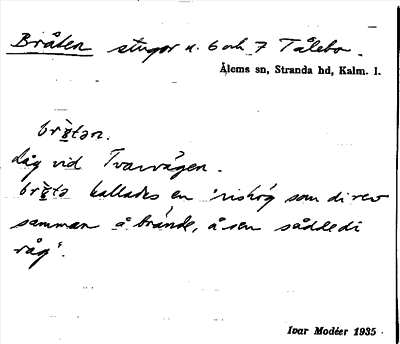 Bråten stugor n. 6 och 7 Tålebo.
Ålems sn, Stranda hd, Kalm. l.
brǫ̀tən.
Låg vid Tvärvägen.
brǫ̀tə kallades en "rishög som di rev
samman å brände, å sen sådde di
råg".
Ivar Modéer 1935